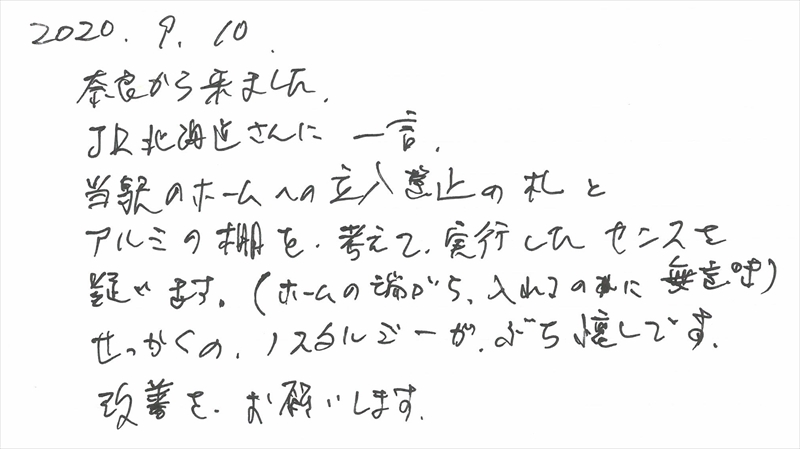 2020. 9. 10.
奈良から来ました.
JR北海道さんに 一言.
当駅のホームへの立入禁止の札と
アルミの棚を.考えて.実行したセンスを
疑います。(ホームの端から、入れるのに無意味)
せっかくの.ノスタルジーが.ぶち壊しです.
改善を.お願いします.